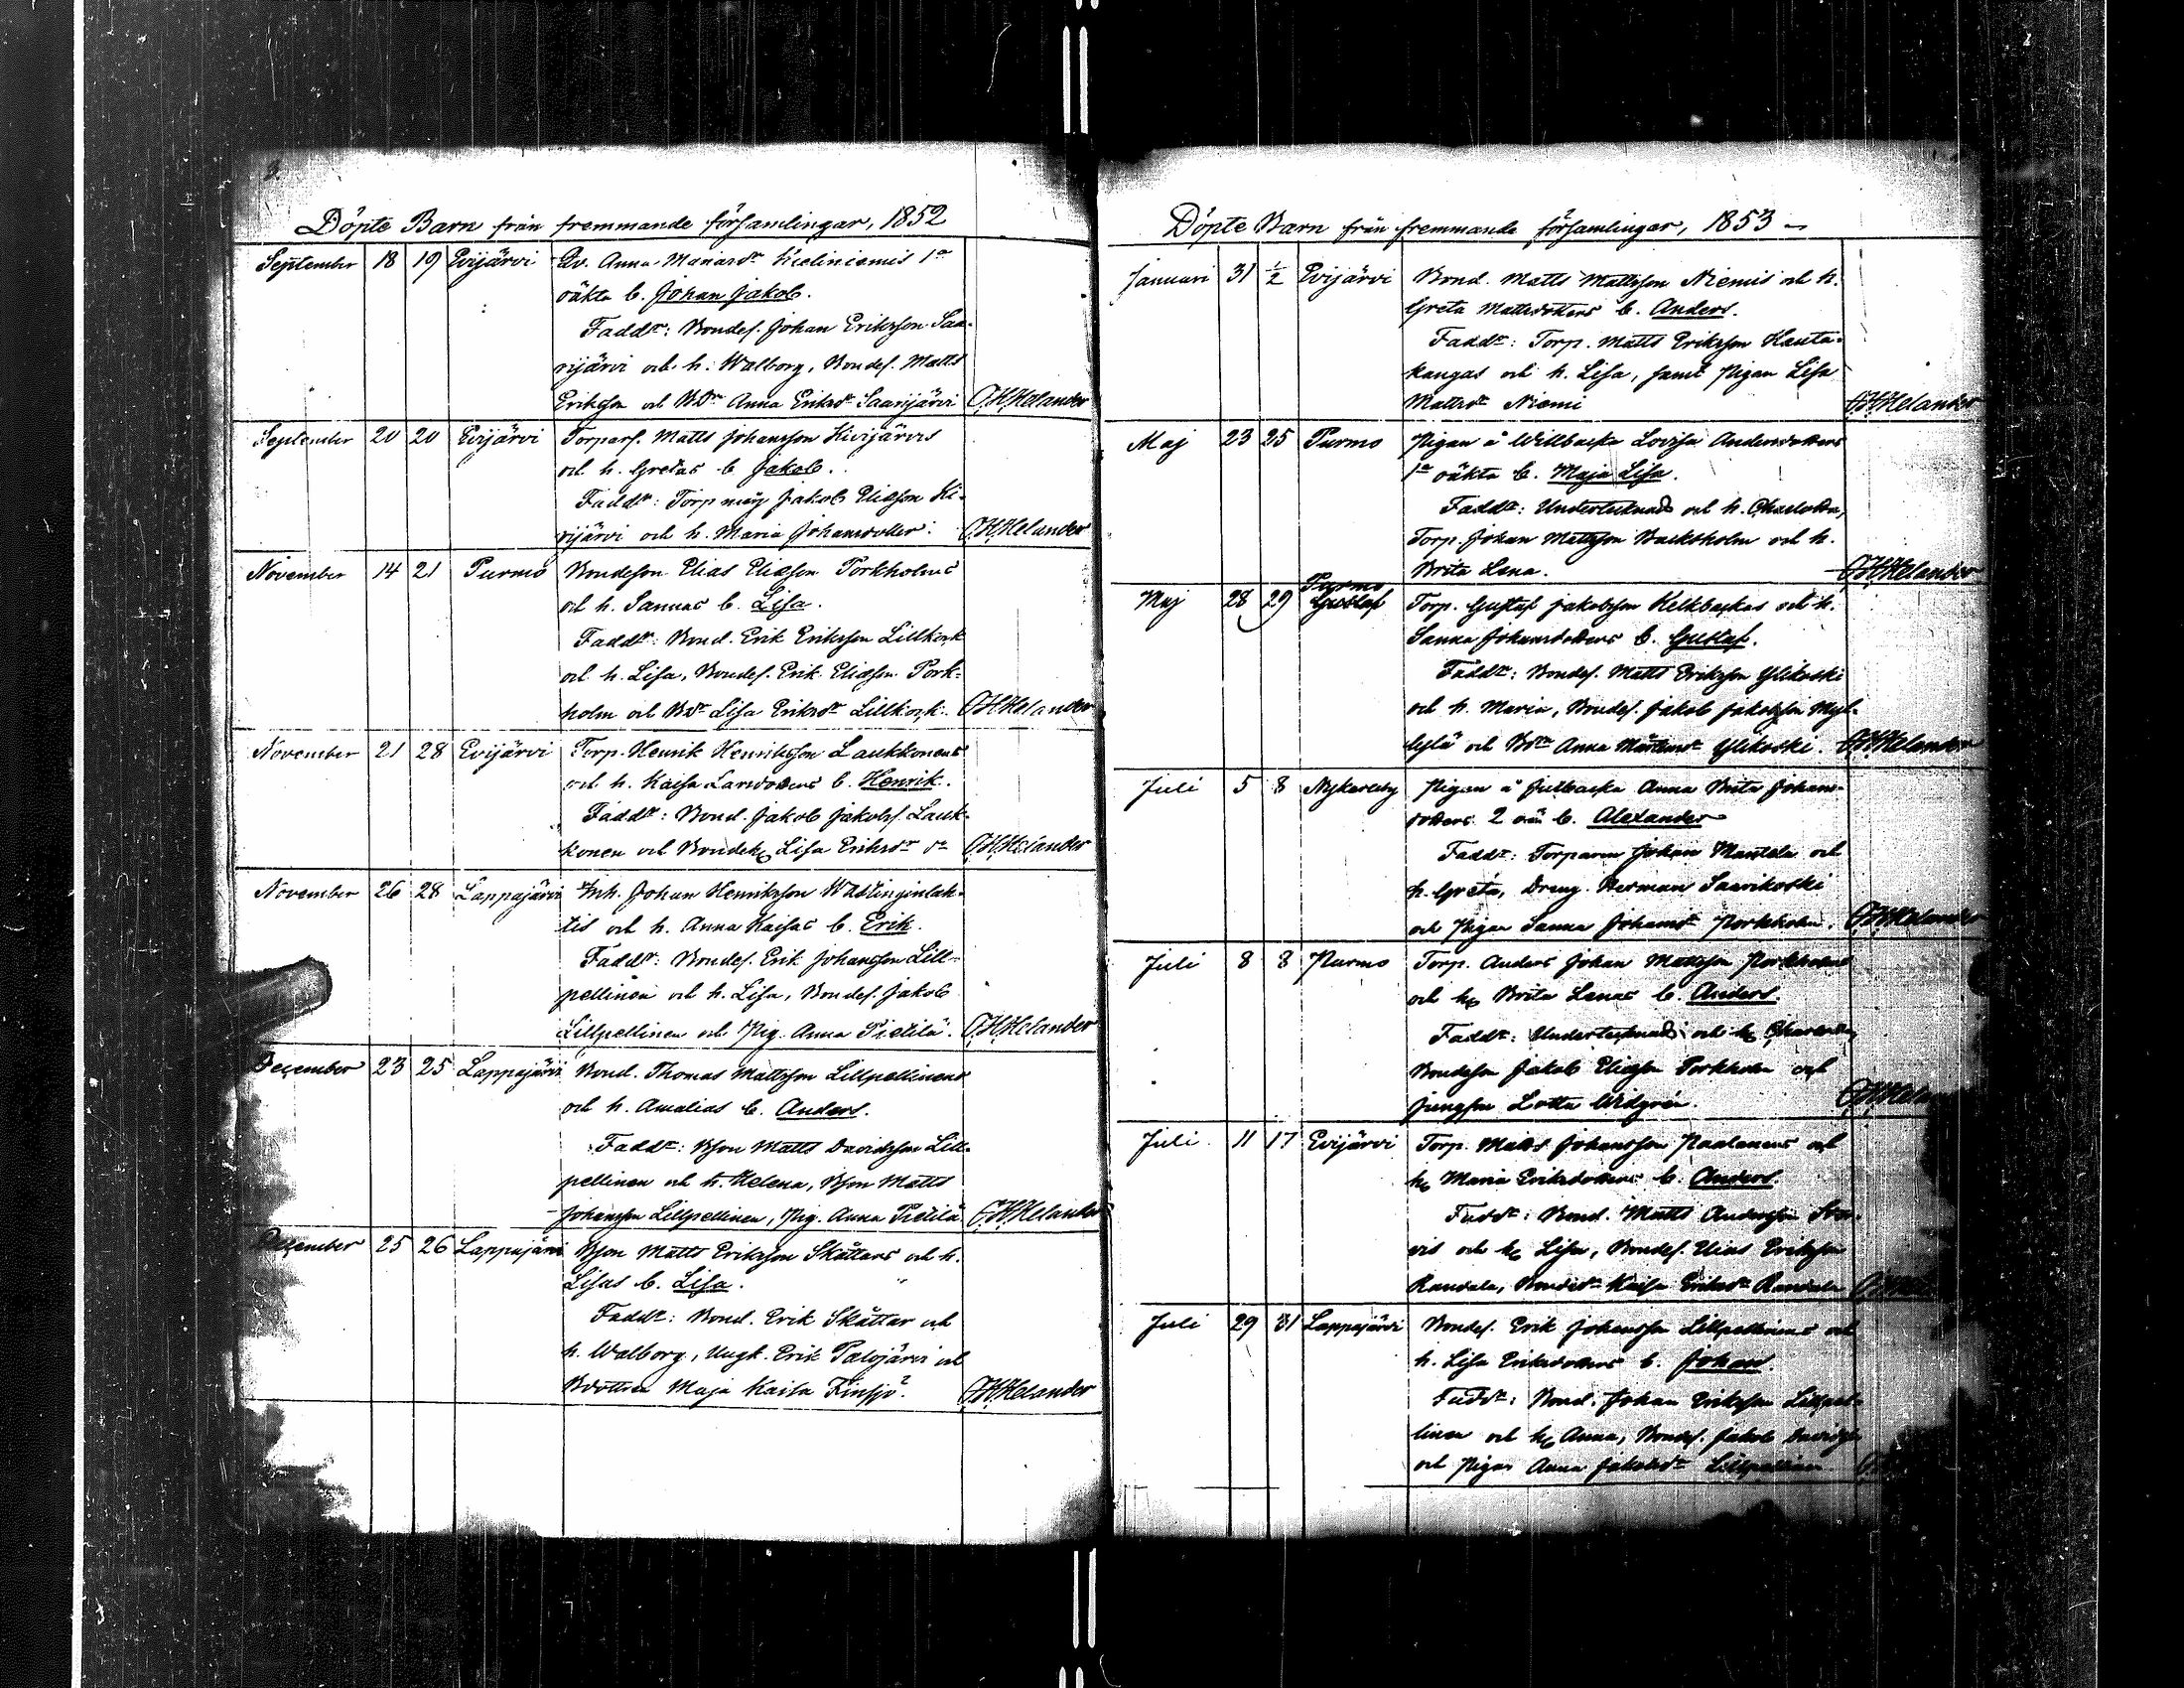 3.
Döpte Barn från fremmande församlingar, 1852
September 18 19 Evijärvi Qv. Anna Mariasdr 1a
oäkta b. Johan Jakob.
Faddr: Bondes. Johan Eriksson Saa-
rijärvi och h. Walborg, Bondes. Matts
Eriksson och BDr Anna Eriksdr Saarijärvi C.H.Helander
September 20 20 Evijärvi Torpars. Matts Johansson Kivijärvis
och h. Gretas b. Jakob.
Faddr: Torp måg Jakob Eliasson Ki-
vijärvi och h. Maria Johansdotter. C.H.Helander
November 14 21 Purmo Bondeson Elias Eliasson Porkholms
och h. Sannas b. Lisa.
Faddr: Bond. Erik Eriksson Lillkork
och h. Lisa, Bondes. Erik Eliasson Pork-
holm och Bdr Lisa Eriksdr Lillkork. C.H.Helander
November 21 28 Evijärvi Torp. Henrik Henriksson Laukkonens
och h. Kaisa Larsdotters b. Henrik.
Faddr: Bond. Jakob Jakobss. Lauk-
konen och Bondeh. Lisa Eriksdr do C.H.Helander
November 26 28 Lappajärvi Inh. Johan Henriksson Wästinginlah-
tis och h. Anna Kaisas b. Erik.
Faddr: Bondes. Erik Johansson Lill-
pellinen och h. Lisa, Bondes. Jakob
Lillpellinen och Pig. Anna Pietilä. C.H.Helander
December 23 25 Lappajärvi Bond. Thomas Mattsson Lillpellinens
och h. Amalias b. Anders.
Faddr: Bson Matts Davidsson Lill-
pellinen och h. Helena, Bson Matts
Johansson Lillpellinen, Pig. Anna Pietilä C.H.Helander
December 25 26 Lappajärvi Bson Matts Eriksson Skåttars och h.
Lisas b. Lisa.
Faddr: Bond. Erik Skåttar och
h. Walborg, Ungk. Erik Palojärvi och
Bdottren Maja Kaisa C.H.Helander
Döpte Barn från fremmande församlingar, 1853
Januari 31 1/2 Evijärvi Bond. Matts Mattsson Niemis och h.
Greta Mattsdotters b. Anders.
Faddr: Torp. Matts Eriksson Hauta-
kangas och h. Lisa, samt Pigan Lisa
Mattsdr Niemi C.H.Helander
Maj 23 25 Purmo Pigan å Willbacka Lovisa Andersdotters
1a oäkta b. Maja Lisa.
Faddr: Undertecknad och h. Charlotta,
Torp. Johan Mattsson Backsholm och h.
Brita Lena. C.H.Helander
Maj 28 29 Purmo Gustaf Torp. Gustaf Jakobsson Kelkbackas och h.
Sanna Johansdotters b. Gustaf.
Faddr: Bondes. Matts Eriksson Ylikoski
och h. Maria, Bondes. Jakob Jakobsson Myl-
lylä och Bdr Anna Ylikoski. C.H.Helander
Juli 5 8 Nykarleby Pigan å Jutbacka Anna Brita Johans-
dotters 2 b. Alexander
Faddr: Torparen Johan Mantela och
h. Greta, Dreng. Herman Saarikoski
och Pigan Sanna Johansdr Porkholm. C.H.Helander
Juli 8 8 Purmo Torp. Anders Johan Mattsson Porkholms
och h. Brita Lenas b. Anders.
Faddr: Undertecknad och h. Charlotta,
Bondeson Jakob Eliasson Porkholm och
Jungfru Lotta C.H.Hela
Juli 11 17 Evijärvi Torp. Matts Johansson Paalanens och
h. Maria Eriksdotters b. Anders.
Faddr: Bond. Matts Andersson
och h. Lisa, Bondes. Elias Eriksson
Randala, Kaisa Eriksdr Randala
Juli 29 31 Lappajärvi Bondes. Erik Johansson Lillpellinens och
h. Lisa Eriksdotters b. Johan
Faddr: Bond. Johan Eriksson Lillpel-
linen och h. Anna, Bondes. Jakob
och Pigan Anna Jakobsdr Lillpellinen